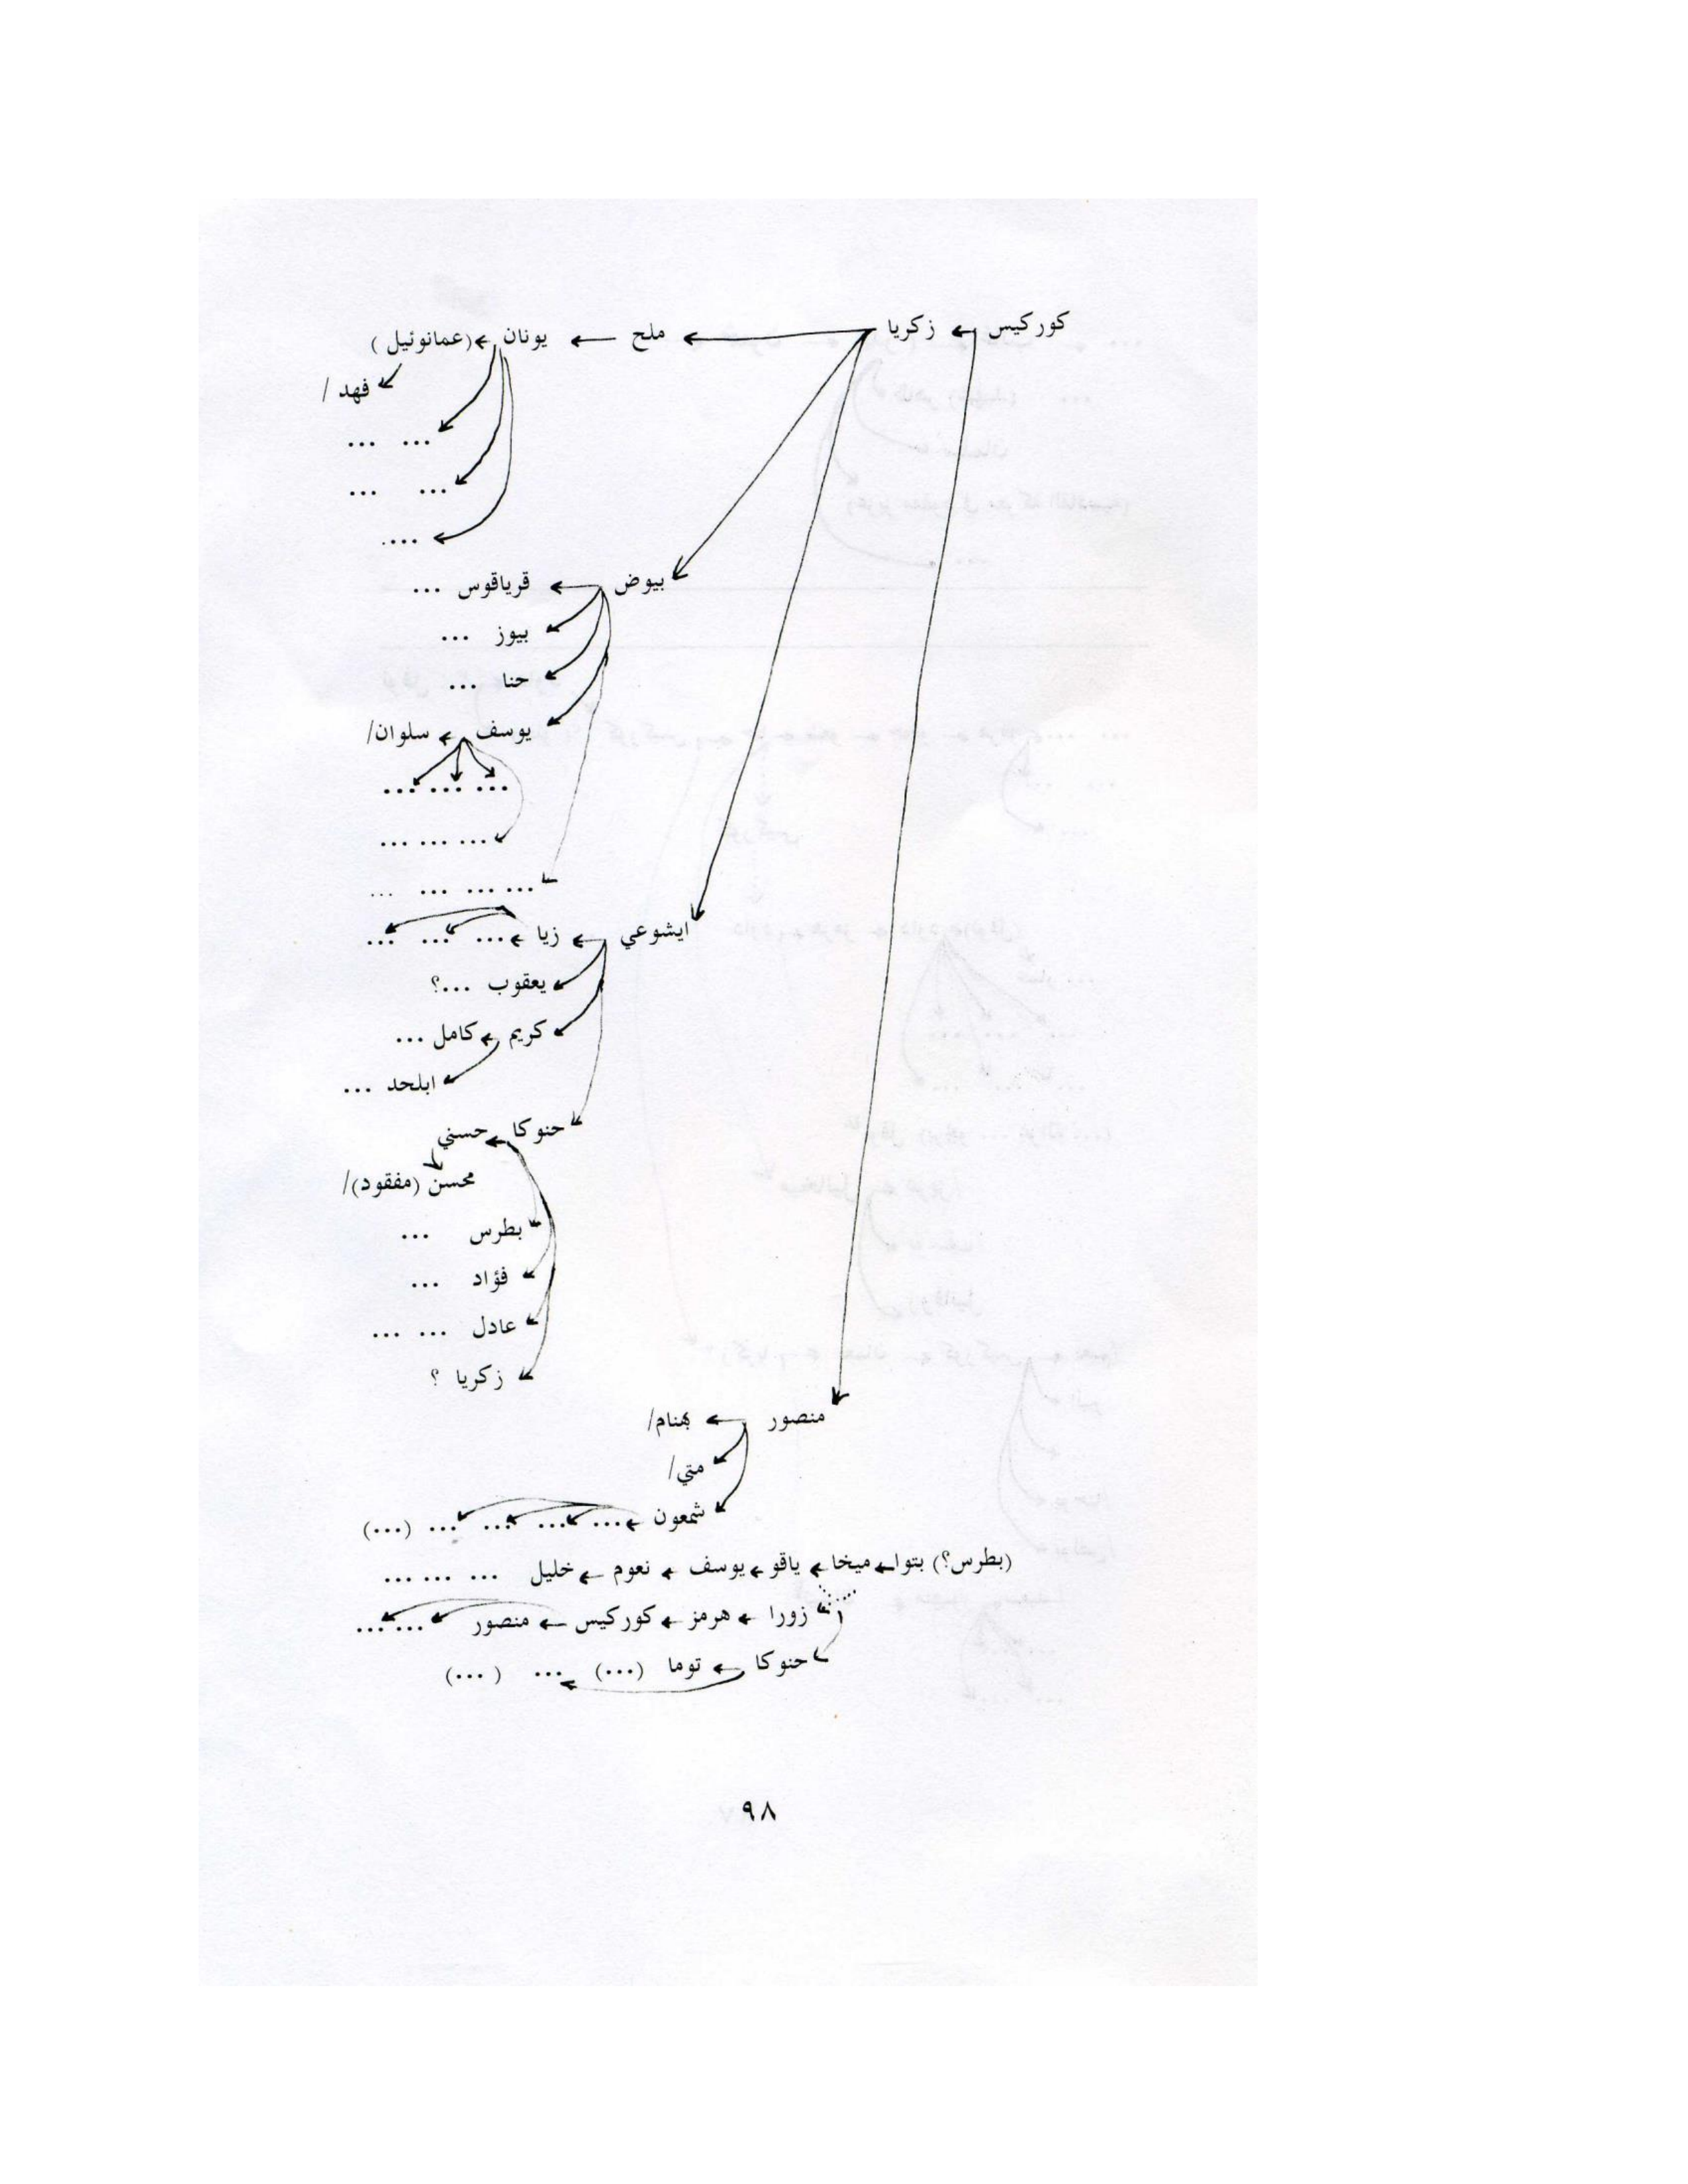 كوركيس زكريا ملح يونان (عمانوئيل )
فهد /
... ...
... ...
....
بيوض قرياقوس ...
بيوز ...
حنا ...
يوسف سلوان/
... ... ...
... ... ...
... ... ... ...
ايشوعي زيا ... ... ...
يعقوب ...؟
كريم كامل ...
ابلحد ...
حنوكا حسني
محسن (مفقود)/
بطرس ...
فؤاد ...
عادل ... ...
زكريا ؟
منصور بهنام/
متي/
شمعون ... ... ... ... (...)
(بطرس؟) بتوا ميخا ياقو يوسف نعوم خليل ... ... ...
زورا هرمز كوركيس منصور ... ...
حنوكا توما (...) ... (... )
٩٨